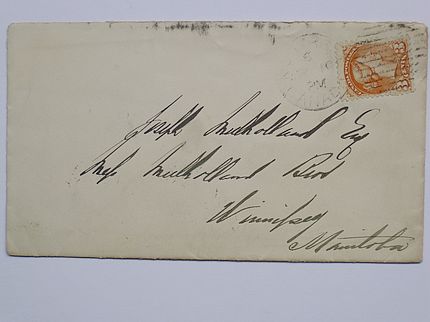 Joseph Mulholland Esq
Mess Mulholland Bros
Winnipeg
Manitoba
3
3